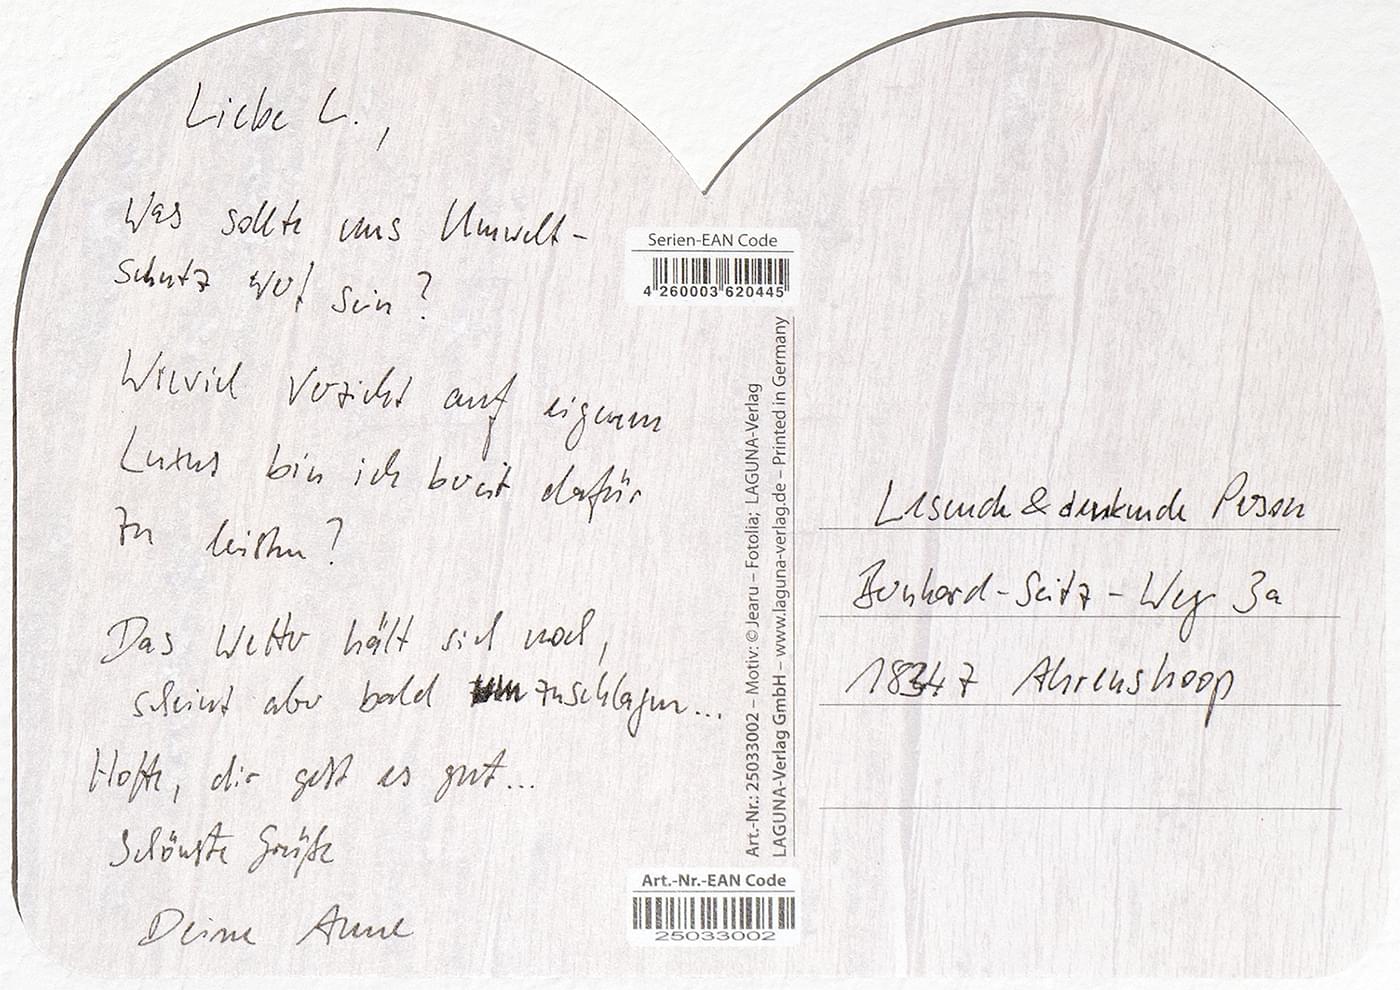 Liebe L.,
Was sollte uns Umwelt-
schutz wert sein?
Wieviel Verzicht auf eigenen
Luxus bin ich bereit dafür
zu leisten?
Das Wetter hält sich noch,
scheint aber bald zuschlagen...
Hoffe, dir geht es gut...
Schönste Grüße
Deine Anne
Serien-EAN Code
4 260003 620445
Art.-Nr.: 25033002 – Motiv: © Jearu – Fotolia; LAGUNA-Verlag
LAGUNA-Verlag GmbH – www.laguna-verlag.de – Printed in Germany
Art.-Nr.-EAN Code
25033002
Lesende & denkende Person
Bernhard-Seitz-Weg 3a
18347 Ahrenshoop